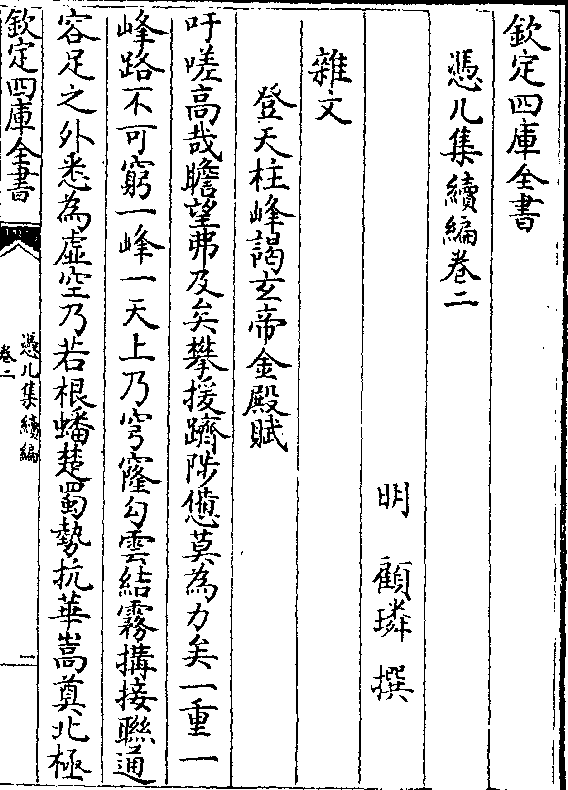 欽定四庫全書
憑几集續編卷二
明 顧璘 撰
雜文
登天柱峰謁玄帝金殿賦
吁嗟高哉瞻望弗及矣攀援躋陟憊莫為力矣一重一
峰路不可窮一峰一天上乃穹窿勾雲結霧搆接聯通
容足之外悉為虛空乃若根蟠楚蜀勢抗華嵩奠北極
欽定四庫全書
憑几集續編
卷二
一